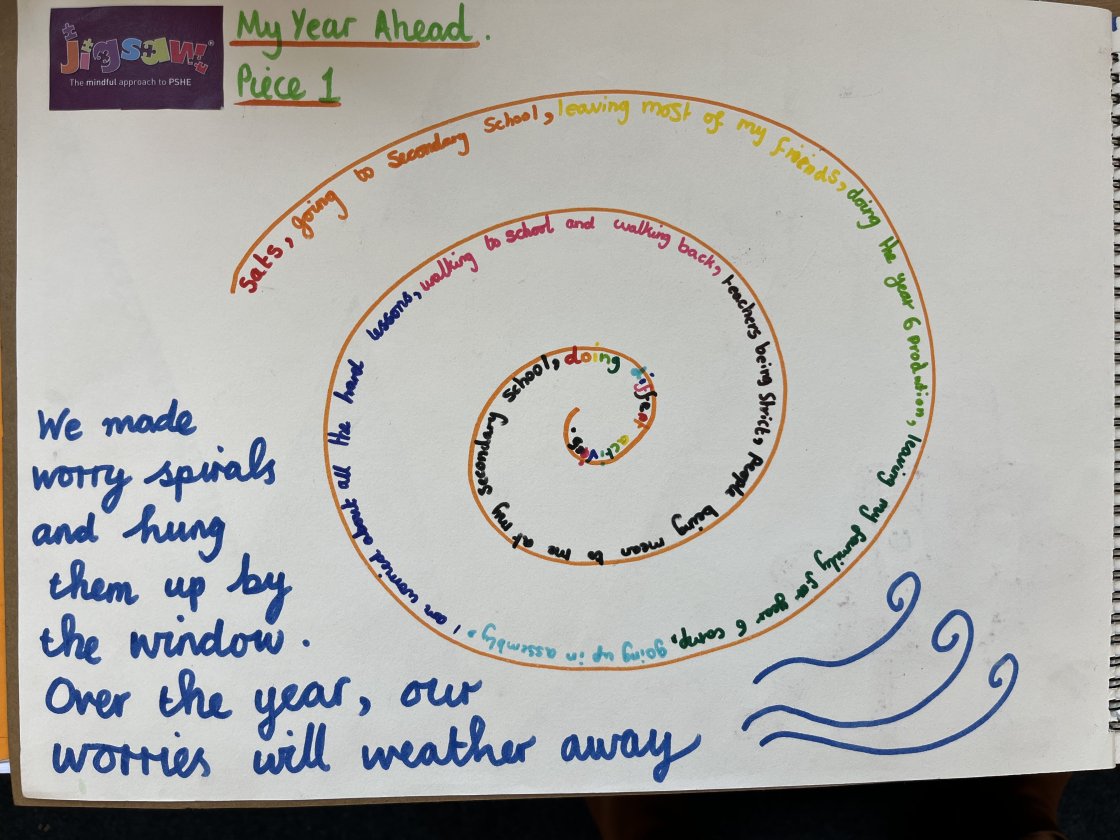 jigsaw!
The mindful approach to PSHE
My Year Ahead.
Piece 1
Sats, going to Secondary School, leaving most of my friends, doing the year 6 production, leaving my family for year 6 camp, going up in assembly, I am worried about all the hard lessons, walking to school and walking back, teachers being strict, People being mean to me at my Secondary School, doing
We made
worry spirals
and hung
them up by
the window.
Over the year, our
worries will weather away